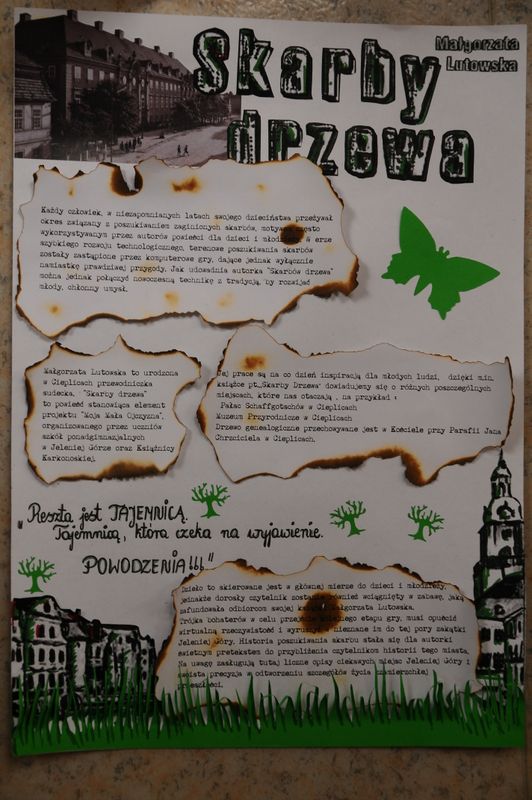 Skarby
drzewa
Małgorzata
Lutowska
Każdy człowiek, w niezapomnianych latach swojego dzieciństwa przeżywał
okres związany z poszukiwaniem zaginionych skarbów, motywem często
wykorzystywanym przez autorów powieści dla dzieci i młodzieży. W erze
szybkiego rozwoju technologicznego, terenowe poszukiwania skarbów
zostały zastąpione przez komputerowe gry, dające jednak wyłącznie
namiastkę prawdziwej przygody. Jak udowadnia autorka "Skarbów drzewa"
można jednak połączyć nowoczesną technikę z tradycją, by rozwijać
młody, chłonny umysł.
Małgorzata Lutowska to urodzona
w Cieplicach przewodniczka
sudecka. "Skarby drzewa"
to powieść stanowiąca element
projektu "Moja Mała Ojczyzna",
organizowanego przez uczniów
szkół ponadgimnazjalnych
w Jeleniej Górze oraz Książnicy
Karkonoskiej.
Jej prace są na co dzień inspiracją dla młodych ludzi, dzięki m.in.
książce pt.„Skarby Drzewa" dowiadujemy się o różnych poszczególnych
miejscach, które nas otaczają , na przykład :
Pałac Schaffgotschów w Cieplicach
Muzeum Przyrodnicze w Cieplicach
Drzewo genealogiczne przechowywane jest w Kościele przy Parafii Jana
Chrzciciela w Cieplicach.
„Reszta jest TAJEMNICĄ.
Tajemnicą, która czeka na wyjawienie.
POWODZENIA!!!"
Dzieło to skierowane jest w głównej mierze do dzieci i młodzieży,
jednakże dorosły czytelnik zostanie również wciągnięty w zabawę, jaką
zafundowała odbiorcom swojej książki Małgorzata Lutowska.
Trójka bohaterów w celu przejścia kolejnego etapu gry, musi opuścić
wirtualną rzeczywistość i wyruszyć w nieznane im do tej pory zakątki
Jeleniej Góry. Historia poszukiwania skarbu stała się dla autorki
świetnym pretekstem do przybliżenia czytelnikom historii tego miasta.
Na uwagę zasługują tutaj liczne opisy ciekawych miejsc Jeleniej Góry i
swoista precyzja w odtworzeniu szczegółów życia zamierzchłej
przeszłości.